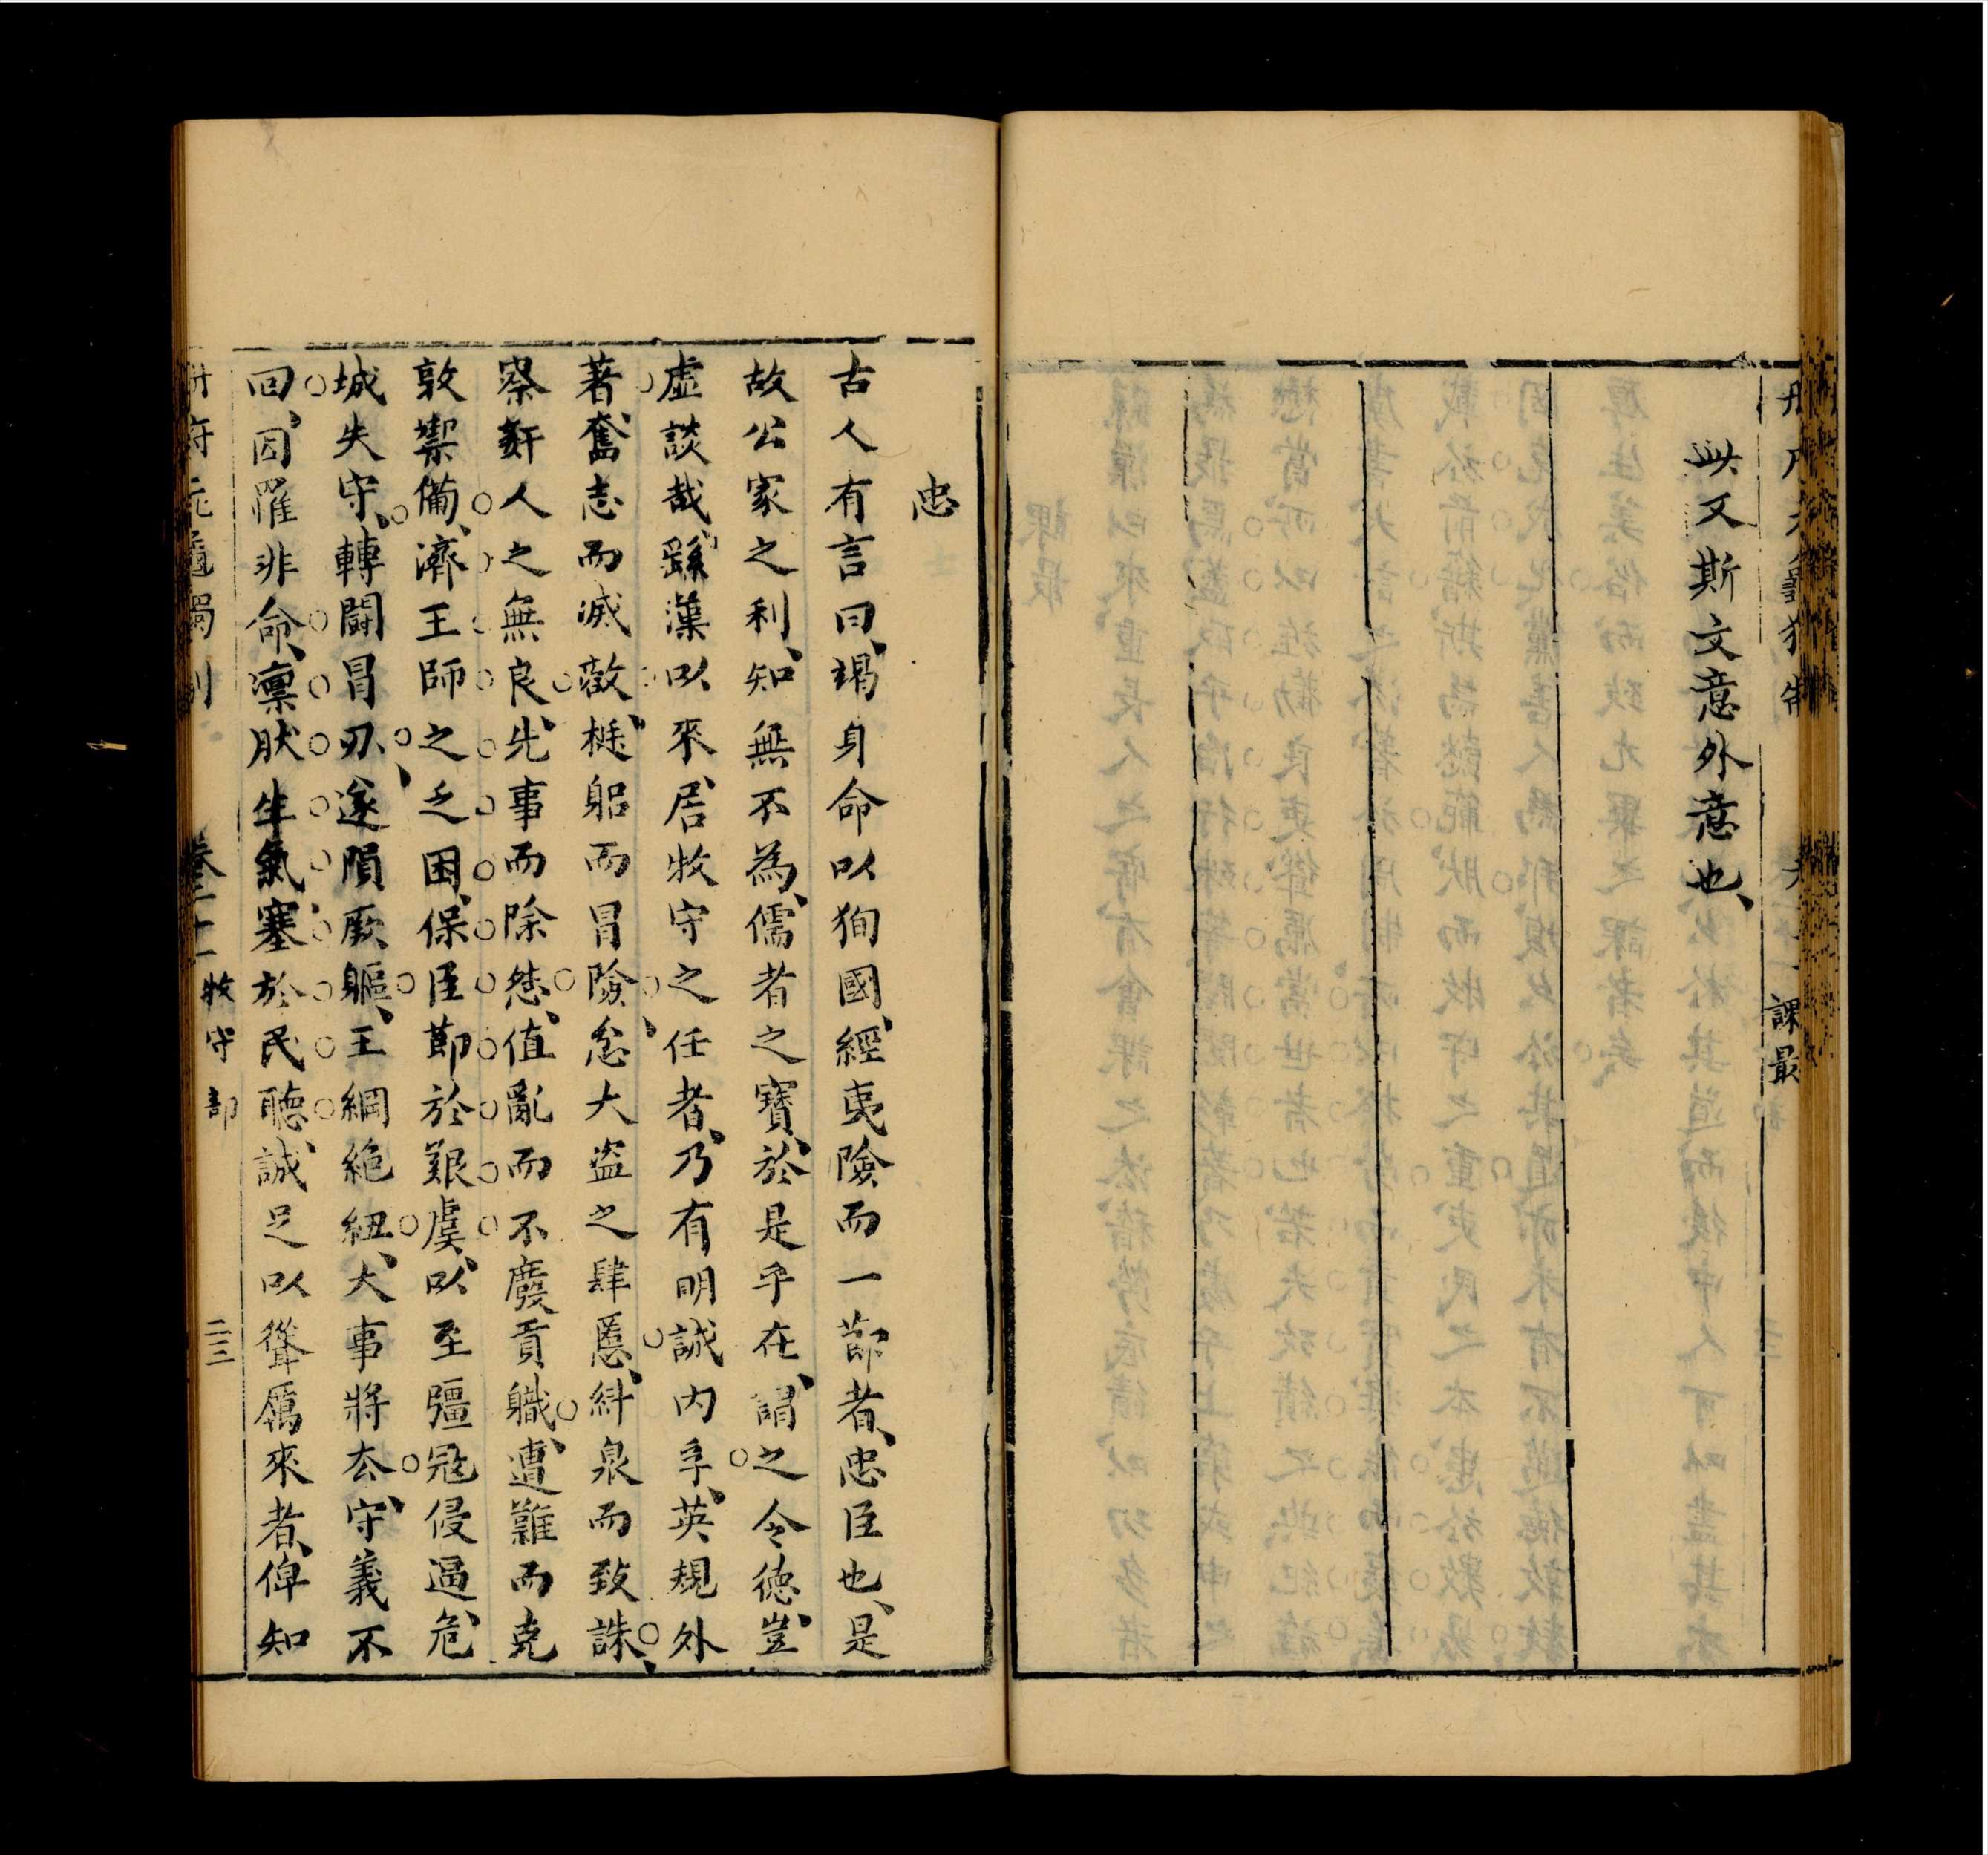 課最
此又斯文意外意也、
忠
古人有言曰、竭身命以狥國、經夷險而一節者、忠臣也、是
故公家之利、知無不為、儒者之寶、於是乎在、謂之令德、豈
虛談哉、繇漢以來、居牧守之任者、乃有明誠內孚、英規外
著、奮志而滅敵、梃躬而冒險、忿大盜之肆慝、糾泉而致誅、
察姧人之無良、先事而除慝、值亂而不廢貢職、遭難而克
敦禦備、濟王師之乏困、保臣節於艱虞、以至彊冦侵逼、危
城失守、轉鬪冒刃、遂隕厥軀、王綱絶紐、大事將去、守義不
回、因罹非命、凜肰生氣、塞於民聽、誠足以聳厲來者、俾知
府元龜獨制 卷二十一 牧守部 二三